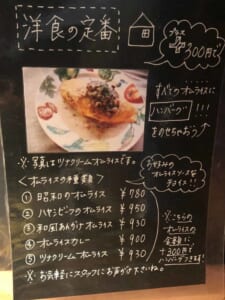 洋食の定番
プラス
300円で
すべてのオムライスに
ハンバーグ!!!
をのせちゃおう
※写真はツナクリームオムライスです。
<オムライスの種類>
① 昭和のオムライス ¥780
② ハヤシビーフのオムライス ¥950
③ 和風あんかけオムライス ¥930
④ オムライスカレー ¥900
⑤ ツナクリームオムライス ¥930
※お気軽にスタッフにお声がけ下さいね。
お好みの
オムライスソースを
チョイス!!
※こちらの
オムライスの
金額に
+300円で
ハンバーグつきます!